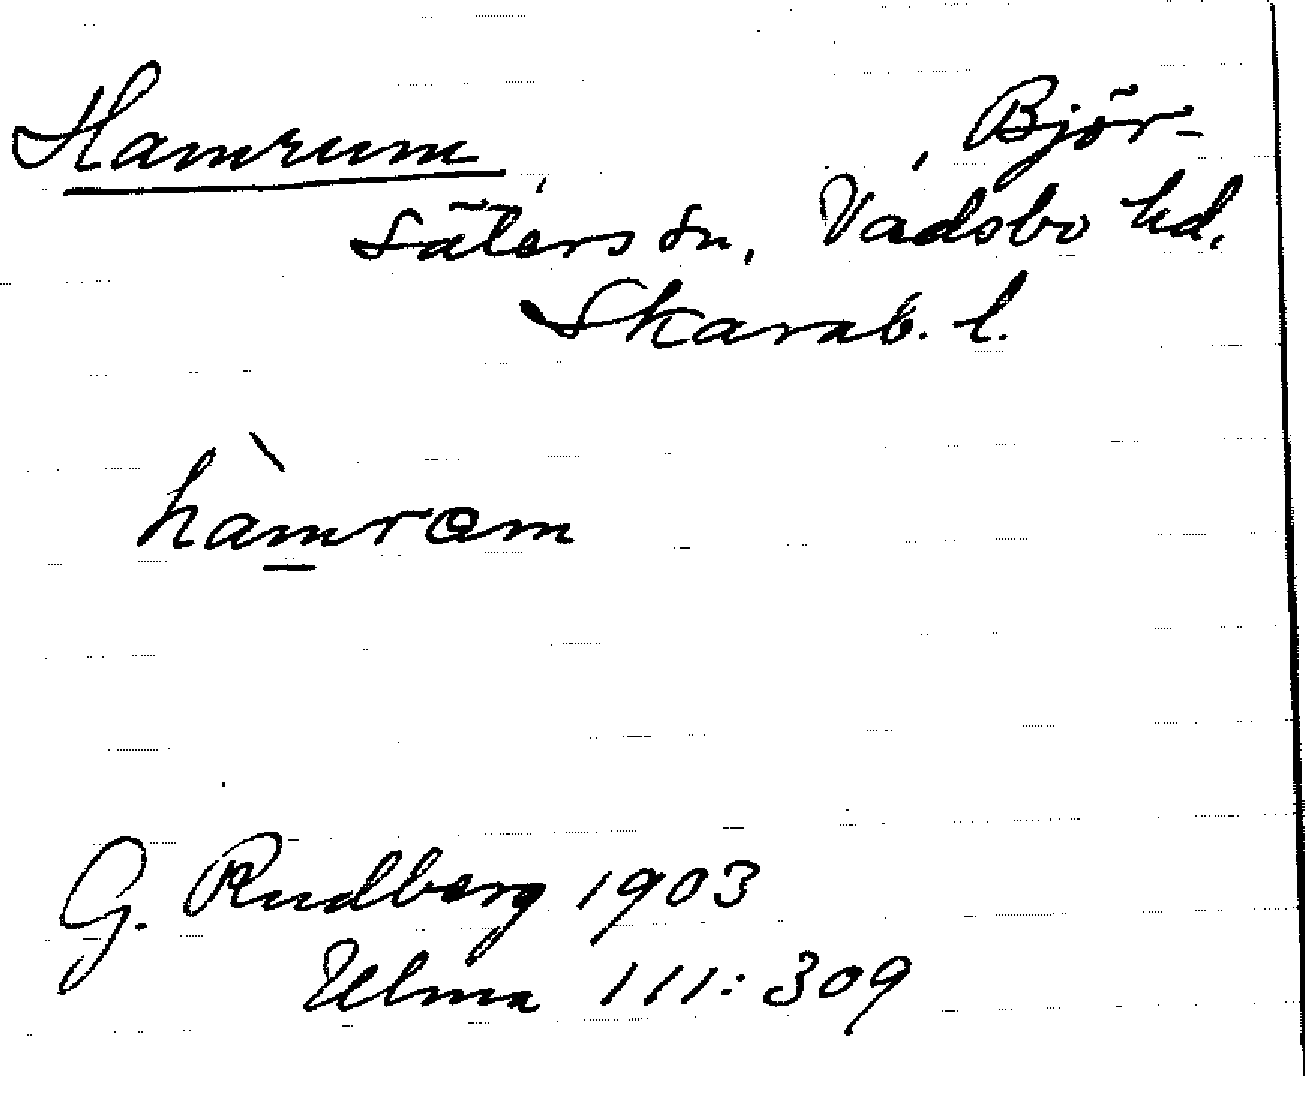 Hamrum, , Björ-
säters sn, Vadsbo hd,
Skarab. l.
hàmrom
G. Rudberg 1903
Ulma 111:309